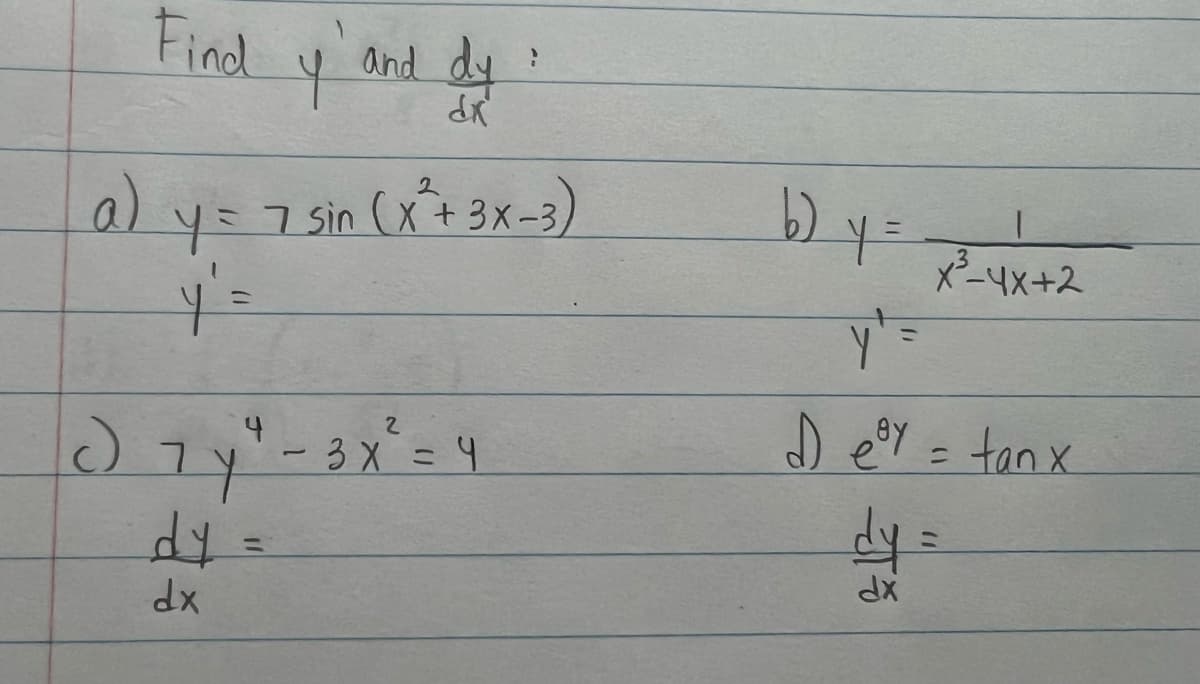 Find y' and dy/dx :
a) y = 7 sin (x² + 3x - 3)
y' =
b) y = 1/(x³ - 4x + 2)
y' =
c) 7y⁴ - 3x² = 4
dy/dx =
d) e^(θy) = tan x
dy/dx =